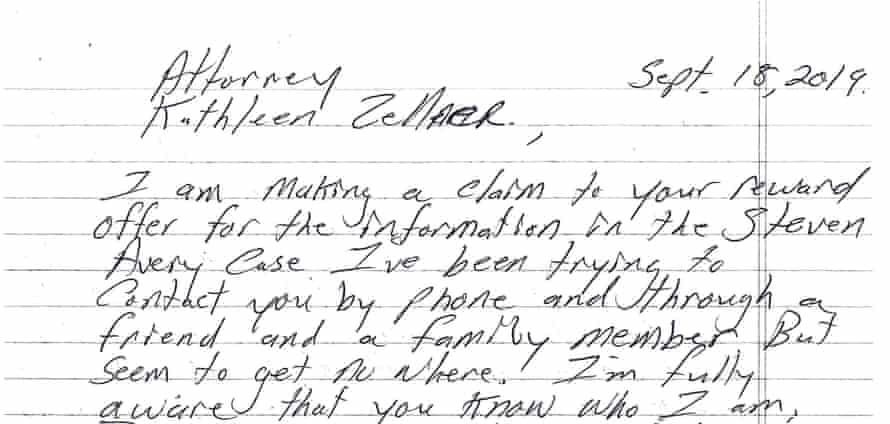 Attorney Sept. 18, 2019.
Kathleen Zellner.,
I am making a claim to your reward
offer for the information in the Steven
Avery Case I've been trying to
Contact you by phone and through a
friend and a family member. But
Seem to get no where. I'm fully
aware that you know who I am,